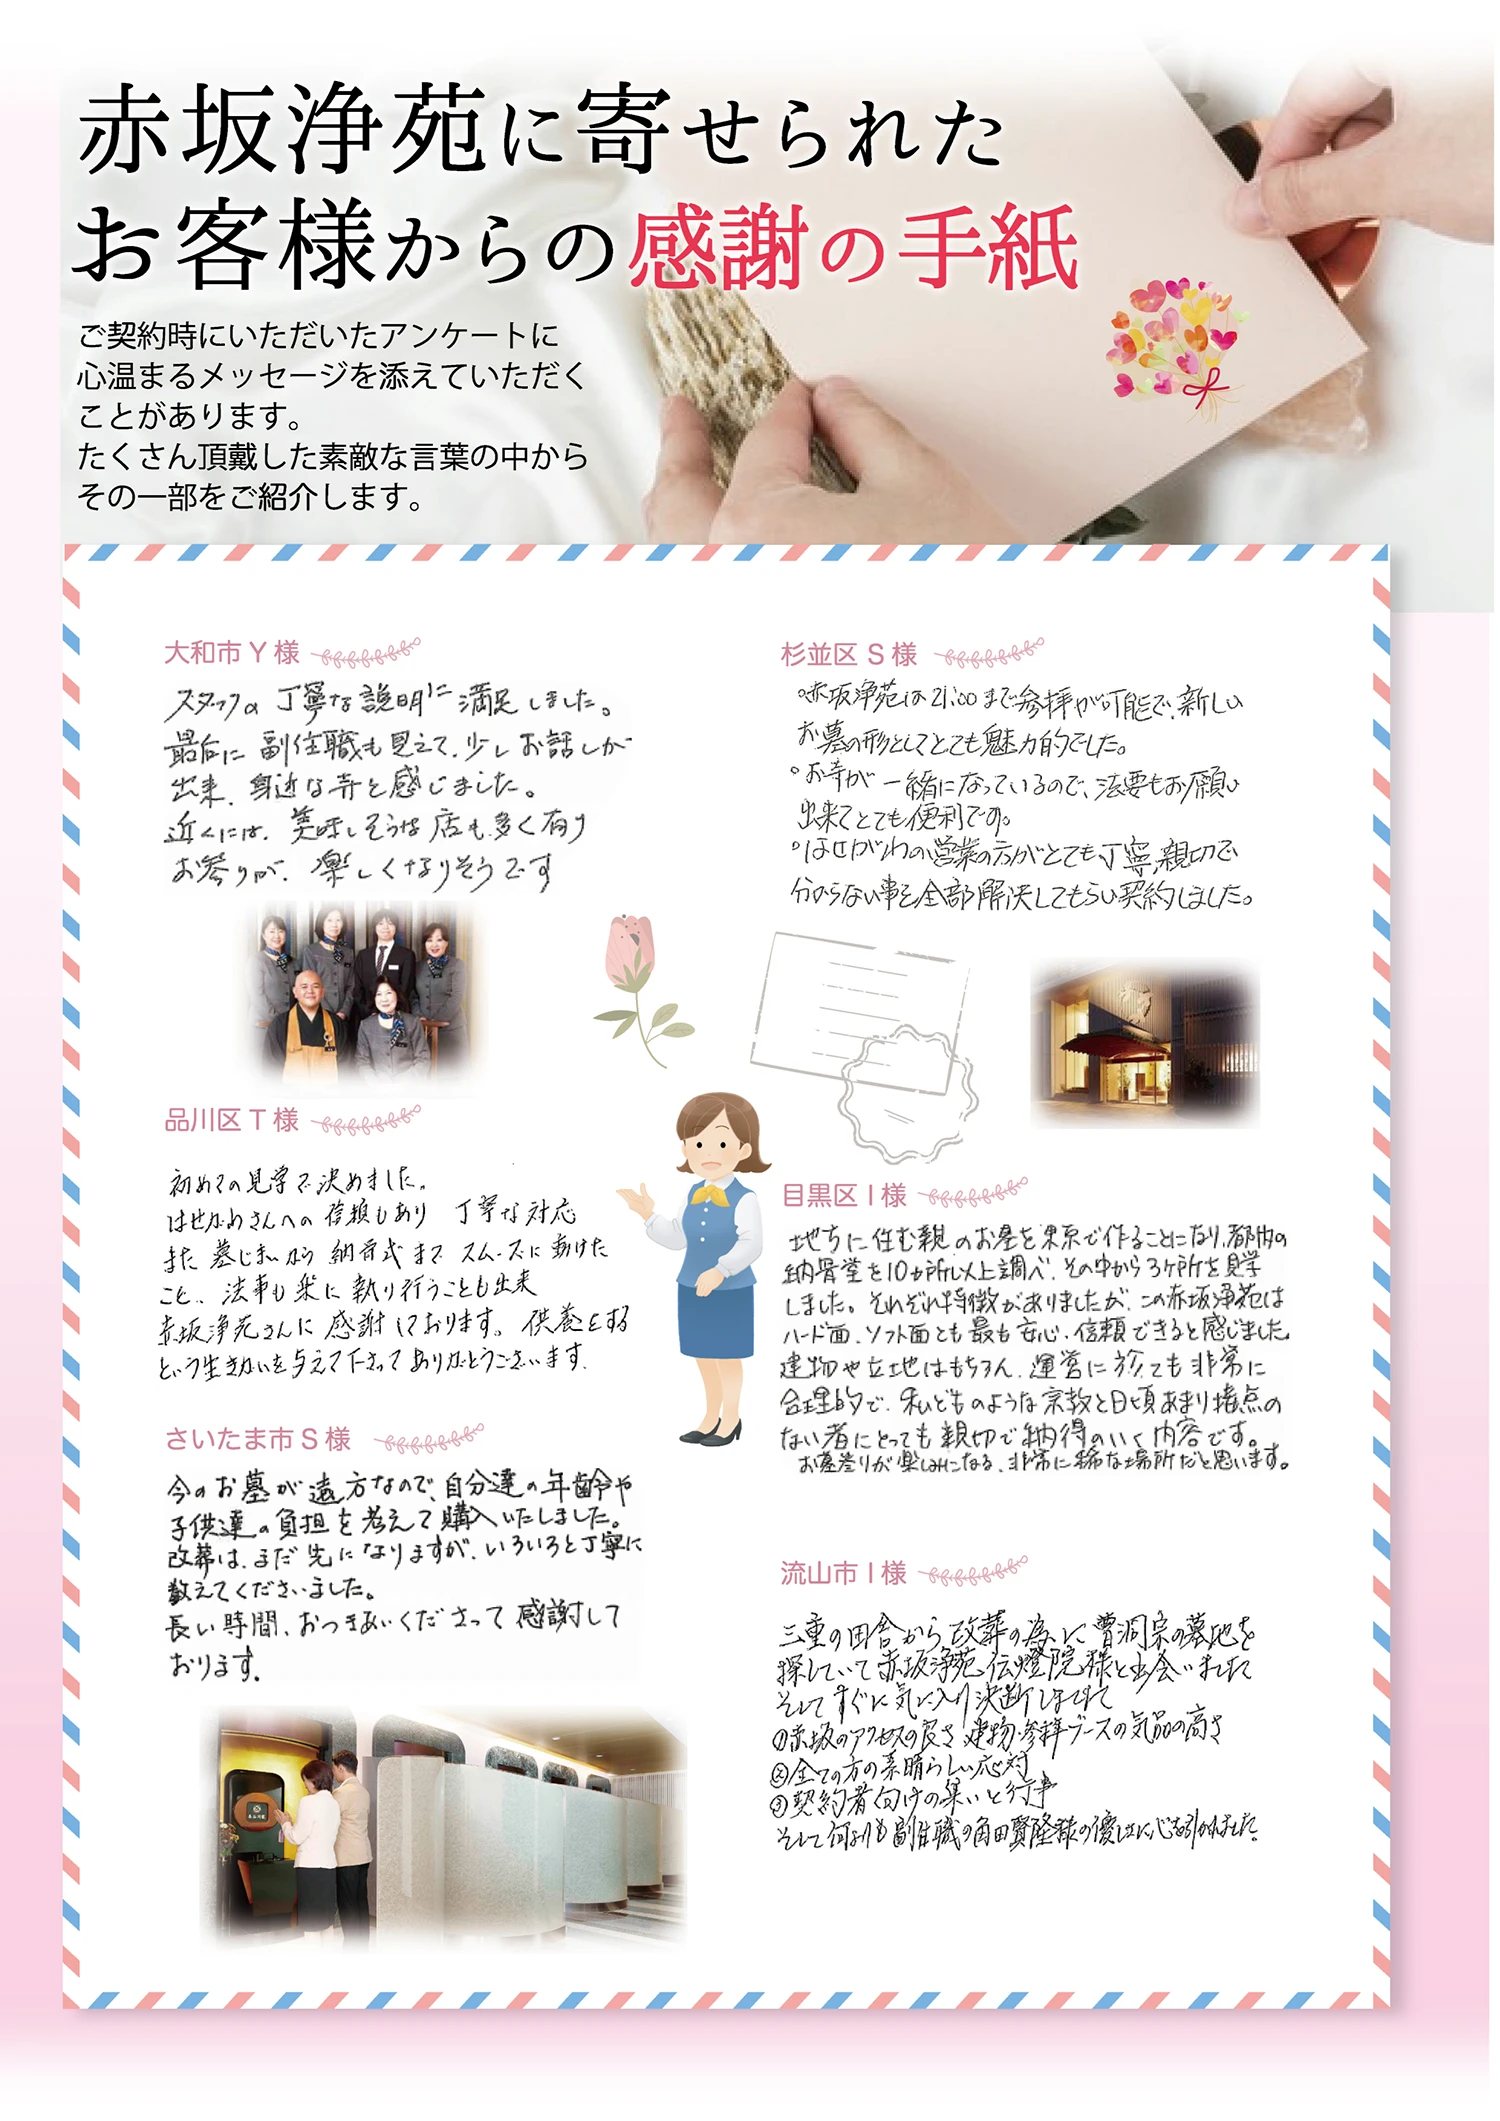 赤坂浄苑に寄せられた
お客様からの感謝の手紙
ご契約時にいただいたアンケートに
心温まるメッセージを添えていただく
ことがあります。
たくさん頂戴した素敵な言葉の中から
その一部をご紹介します。
大和市 Y 様
スタッフの丁寧な説明に満足しました。
最后に副住職も見えて、少しお話しが
出来、身近な寺と感じました。
近くには、美味しそうな店も多く有り
お参りが、楽しくなりそうです
品川区 T 様
初めての見学で決めました。
はせがわさんへの信頼もあり 丁寧な対応
また墓じまいから納骨式までスムーズに動けた
こと、法事も楽に執り行うことも出来
赤坂浄苑さんに感謝しております。供養をする
という生きがいを与えて下さってありがとうございます。
さいたま市 S 様
今のお墓が遠方なので、自分達の年齢や
子供達の負担を考えて購入いたしました。
改葬は、まだ先になりますが、いろいろと丁寧に
教えてくださいました。
長い時間、おつきあいくださって感謝して
おります。
杉並区 S 様
°赤坂浄苑は21:00まで参拝が可能で、新しい
お墓の形としてとても魅力的でした。
°お寺が一緒になっているので、法要もお願い
出来てとても便利です。
°はせがわの営業の方がとても丁寧、親切で
分からない事を全部解決してもらい契約しました。
目黒区 I 様
地方に住む親のお墓を東京で作ることになり、都内の
納骨堂を10ヵ所以上調べ、その中から3ヶ所を見学
しました。それぞれ特徴がありましたが、この赤坂浄苑は
ハード面、ソフト面とも最も安心、信頼できると感じました。
建物や立地はもちろん、運営に於ても非常に
合理的で、私どものような宗教と日頃あまり接点の
ない者にとっても親切で納得のいく内容です。
お墓参りが楽しみになる、非常に稀な場所だと思います。
流山市 I 様
三重の田舎から改葬の為に曹洞宗の墓地を
探していて赤坂浄苑伝燈院様と出会いました
そしてすぐに気に入り決断しました
①赤坂のアクセスの良さ 建物・参拝ブースの気品の高さ
②全ての方の素晴らしい応対
③契約者向けの集いと行事
そして何よりも副住職の角田賢隆様の優しさに心を引かれました。